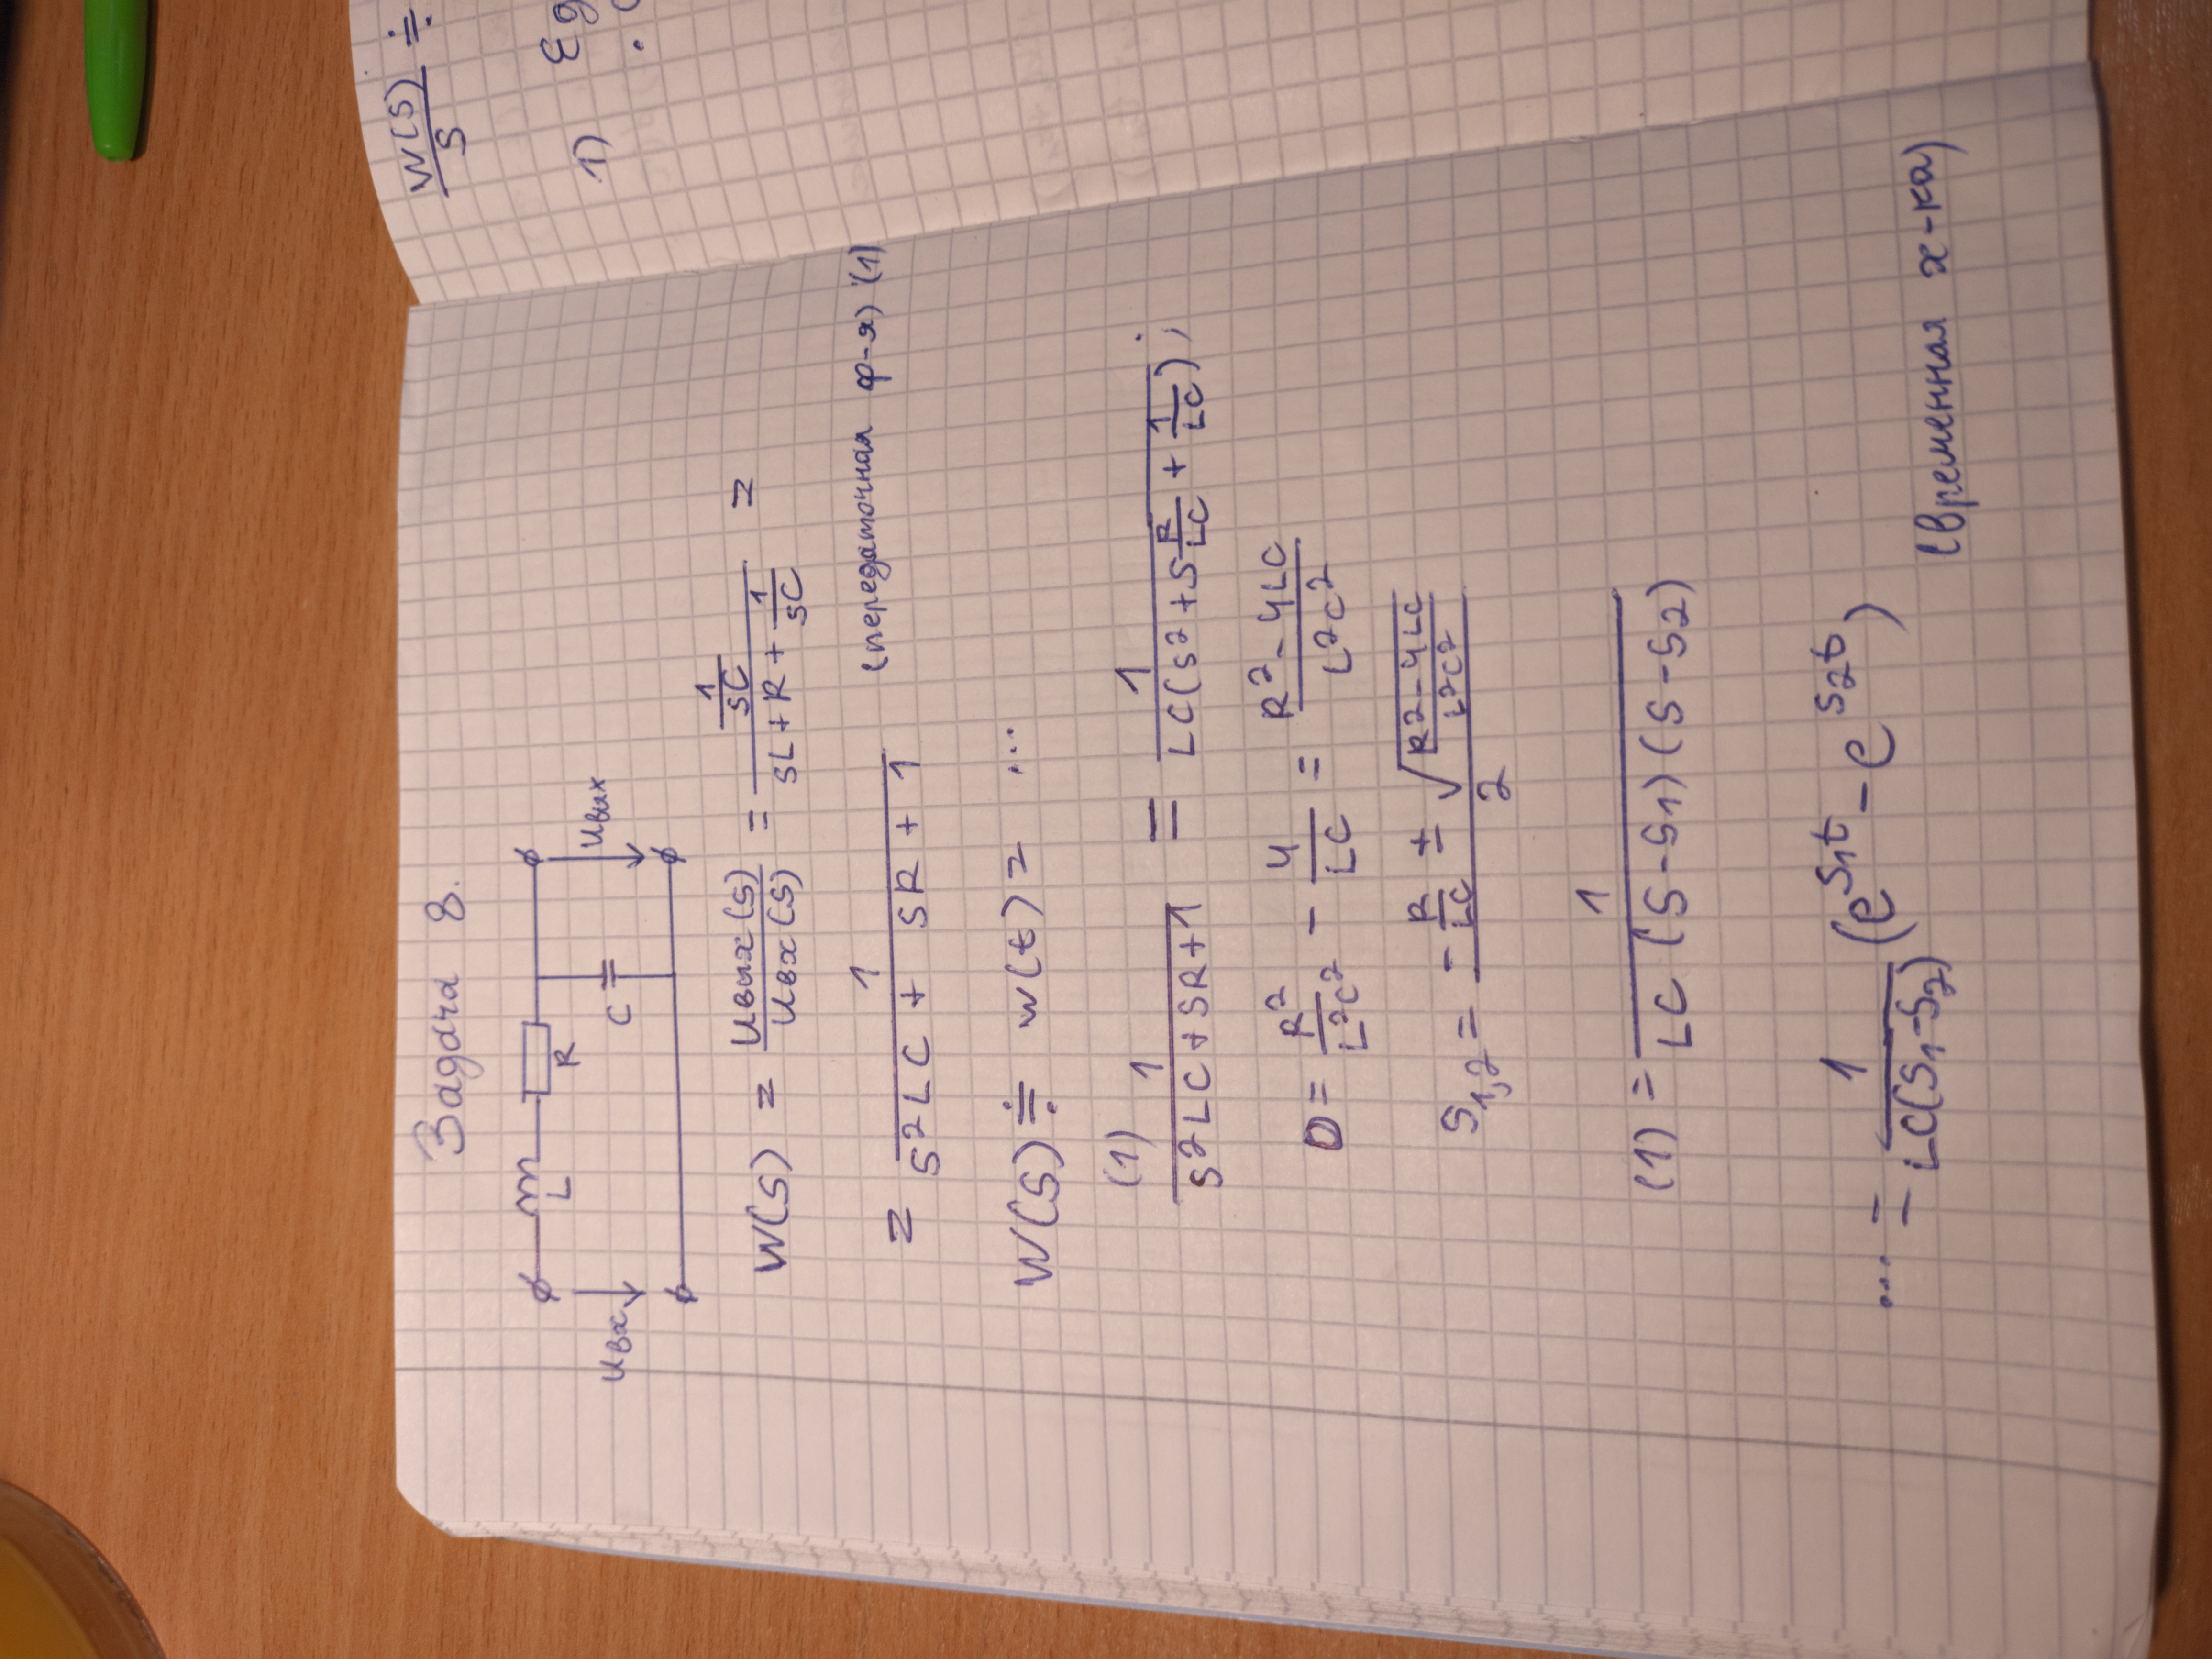 Задача 8.
L R
Uвх C Uвых
W(s) = Uвых(s)/Uвх(s) = (1/sC)/(sL + R + 1/sC) =
= 1/(s²LC + sR + 1) (передаточная ф-я) (1)
W(s) ≓ w(t) = ...
(1) 1/(s²LC + sR + 1) = 1/(LC(s² + s R/LC + 1/LC));
D = R²/L²C² - 4/LC = (R² - 4LC)/L²C²
s1,2 = (-R/LC ± √((R² - 4LC)/L²C²))/2
(1) = 1/(LC (s - s1)(s - s2))
... = 1/(LC(s1 - s2)) (e^(s1t) - e^(s2t))
(временная х-ка)
W(s)/s ≓
1)